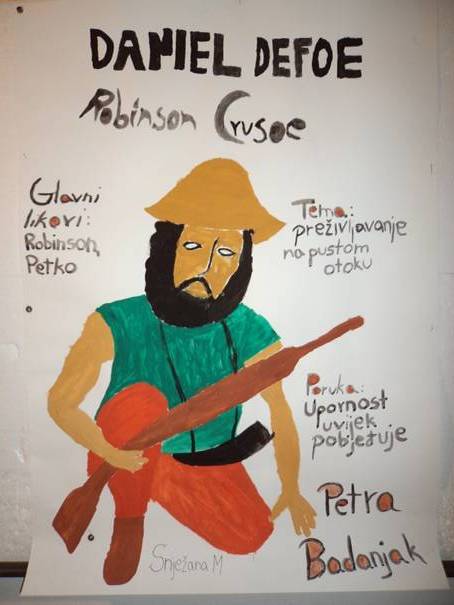 DANIEL DEFOE
Robinson Crusoe
Glavni
likovi:
Robinson,
Petko
Tema:
preživljavanje
na pustom
otoku
Poruka:
Upornost
uvijek
pobjeđuje
Petra
Badanjak
Snježana M